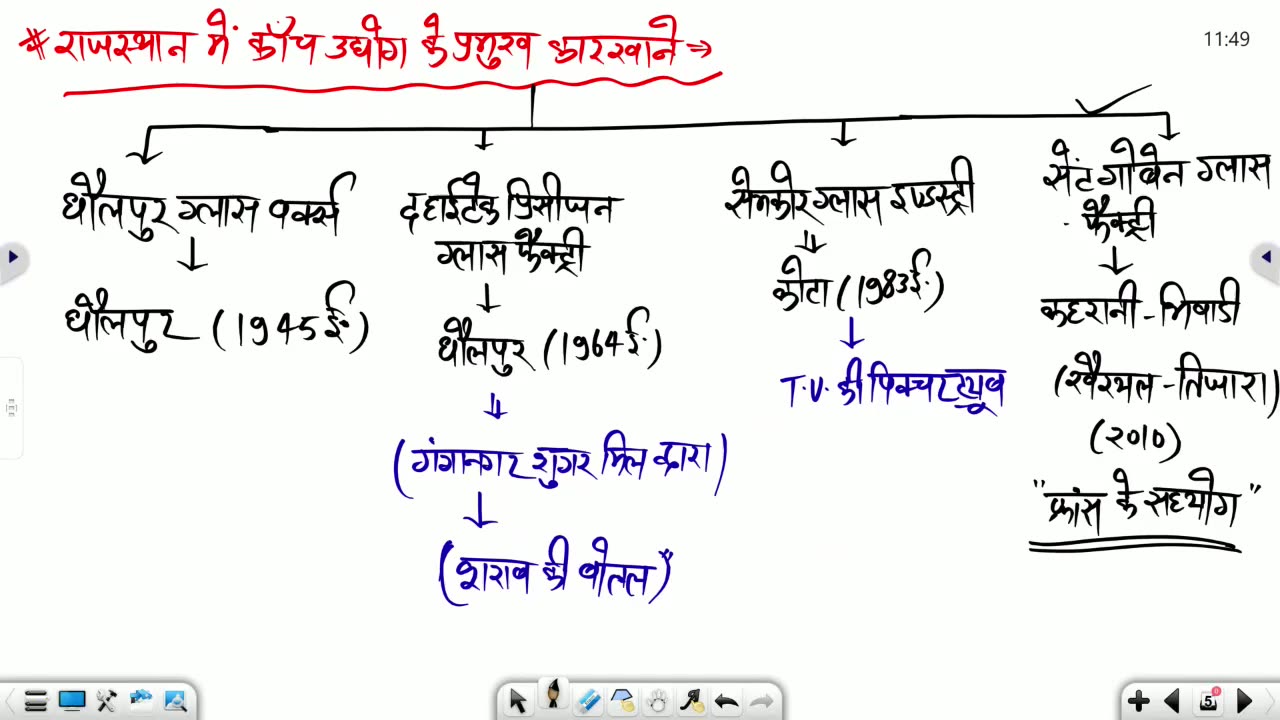 # राजस्थान में काँच उद्योग के प्रमुख कारखाने →
11:49
धौलपुर ग्लास वर्क्स
धौलपुर (1945 ई.)
द हाईटेक प्रिसीजन
ग्लास फैक्ट्री
धौलपुर (1964 ई.)
(गंगानगर शुगर मिल द्वारा)
(शराब की बोतल")
सेमकोर ग्लास इण्डस्ट्री
कोटा (1983 ई.)
T.V. की पिक्चर ट्यूब
सेंट गोबेन ग्लास
फैक्ट्री
कहरानी - भिवाडी
(खैरथल - तिजारा)
(2010)
"फ्रांस के सहयोग"
5